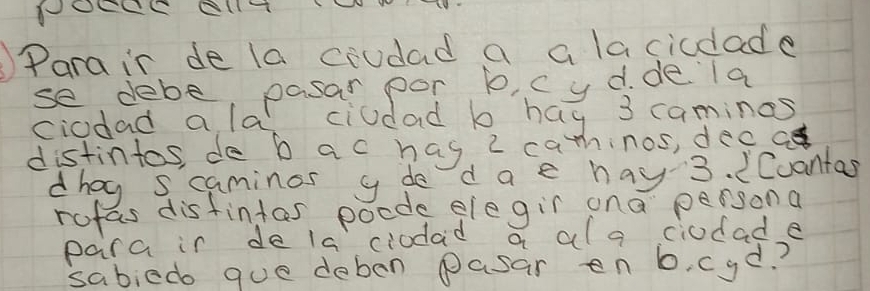 puede ella
Para ir de la ciudad a a la ciudad e
se debe pasar por b, c y d. de la
ciodad a, la ciudad b hay 3 caminos
distintos, de b a c hay 2 caminos, de c a
d hay 5 caminos y de d a e hay 3. ¿Cuantas
rotas distintas poede elegir ona persona
para ir de la ciodad a a la ciodad e
sabiedo que deben pasar en b, c y d?